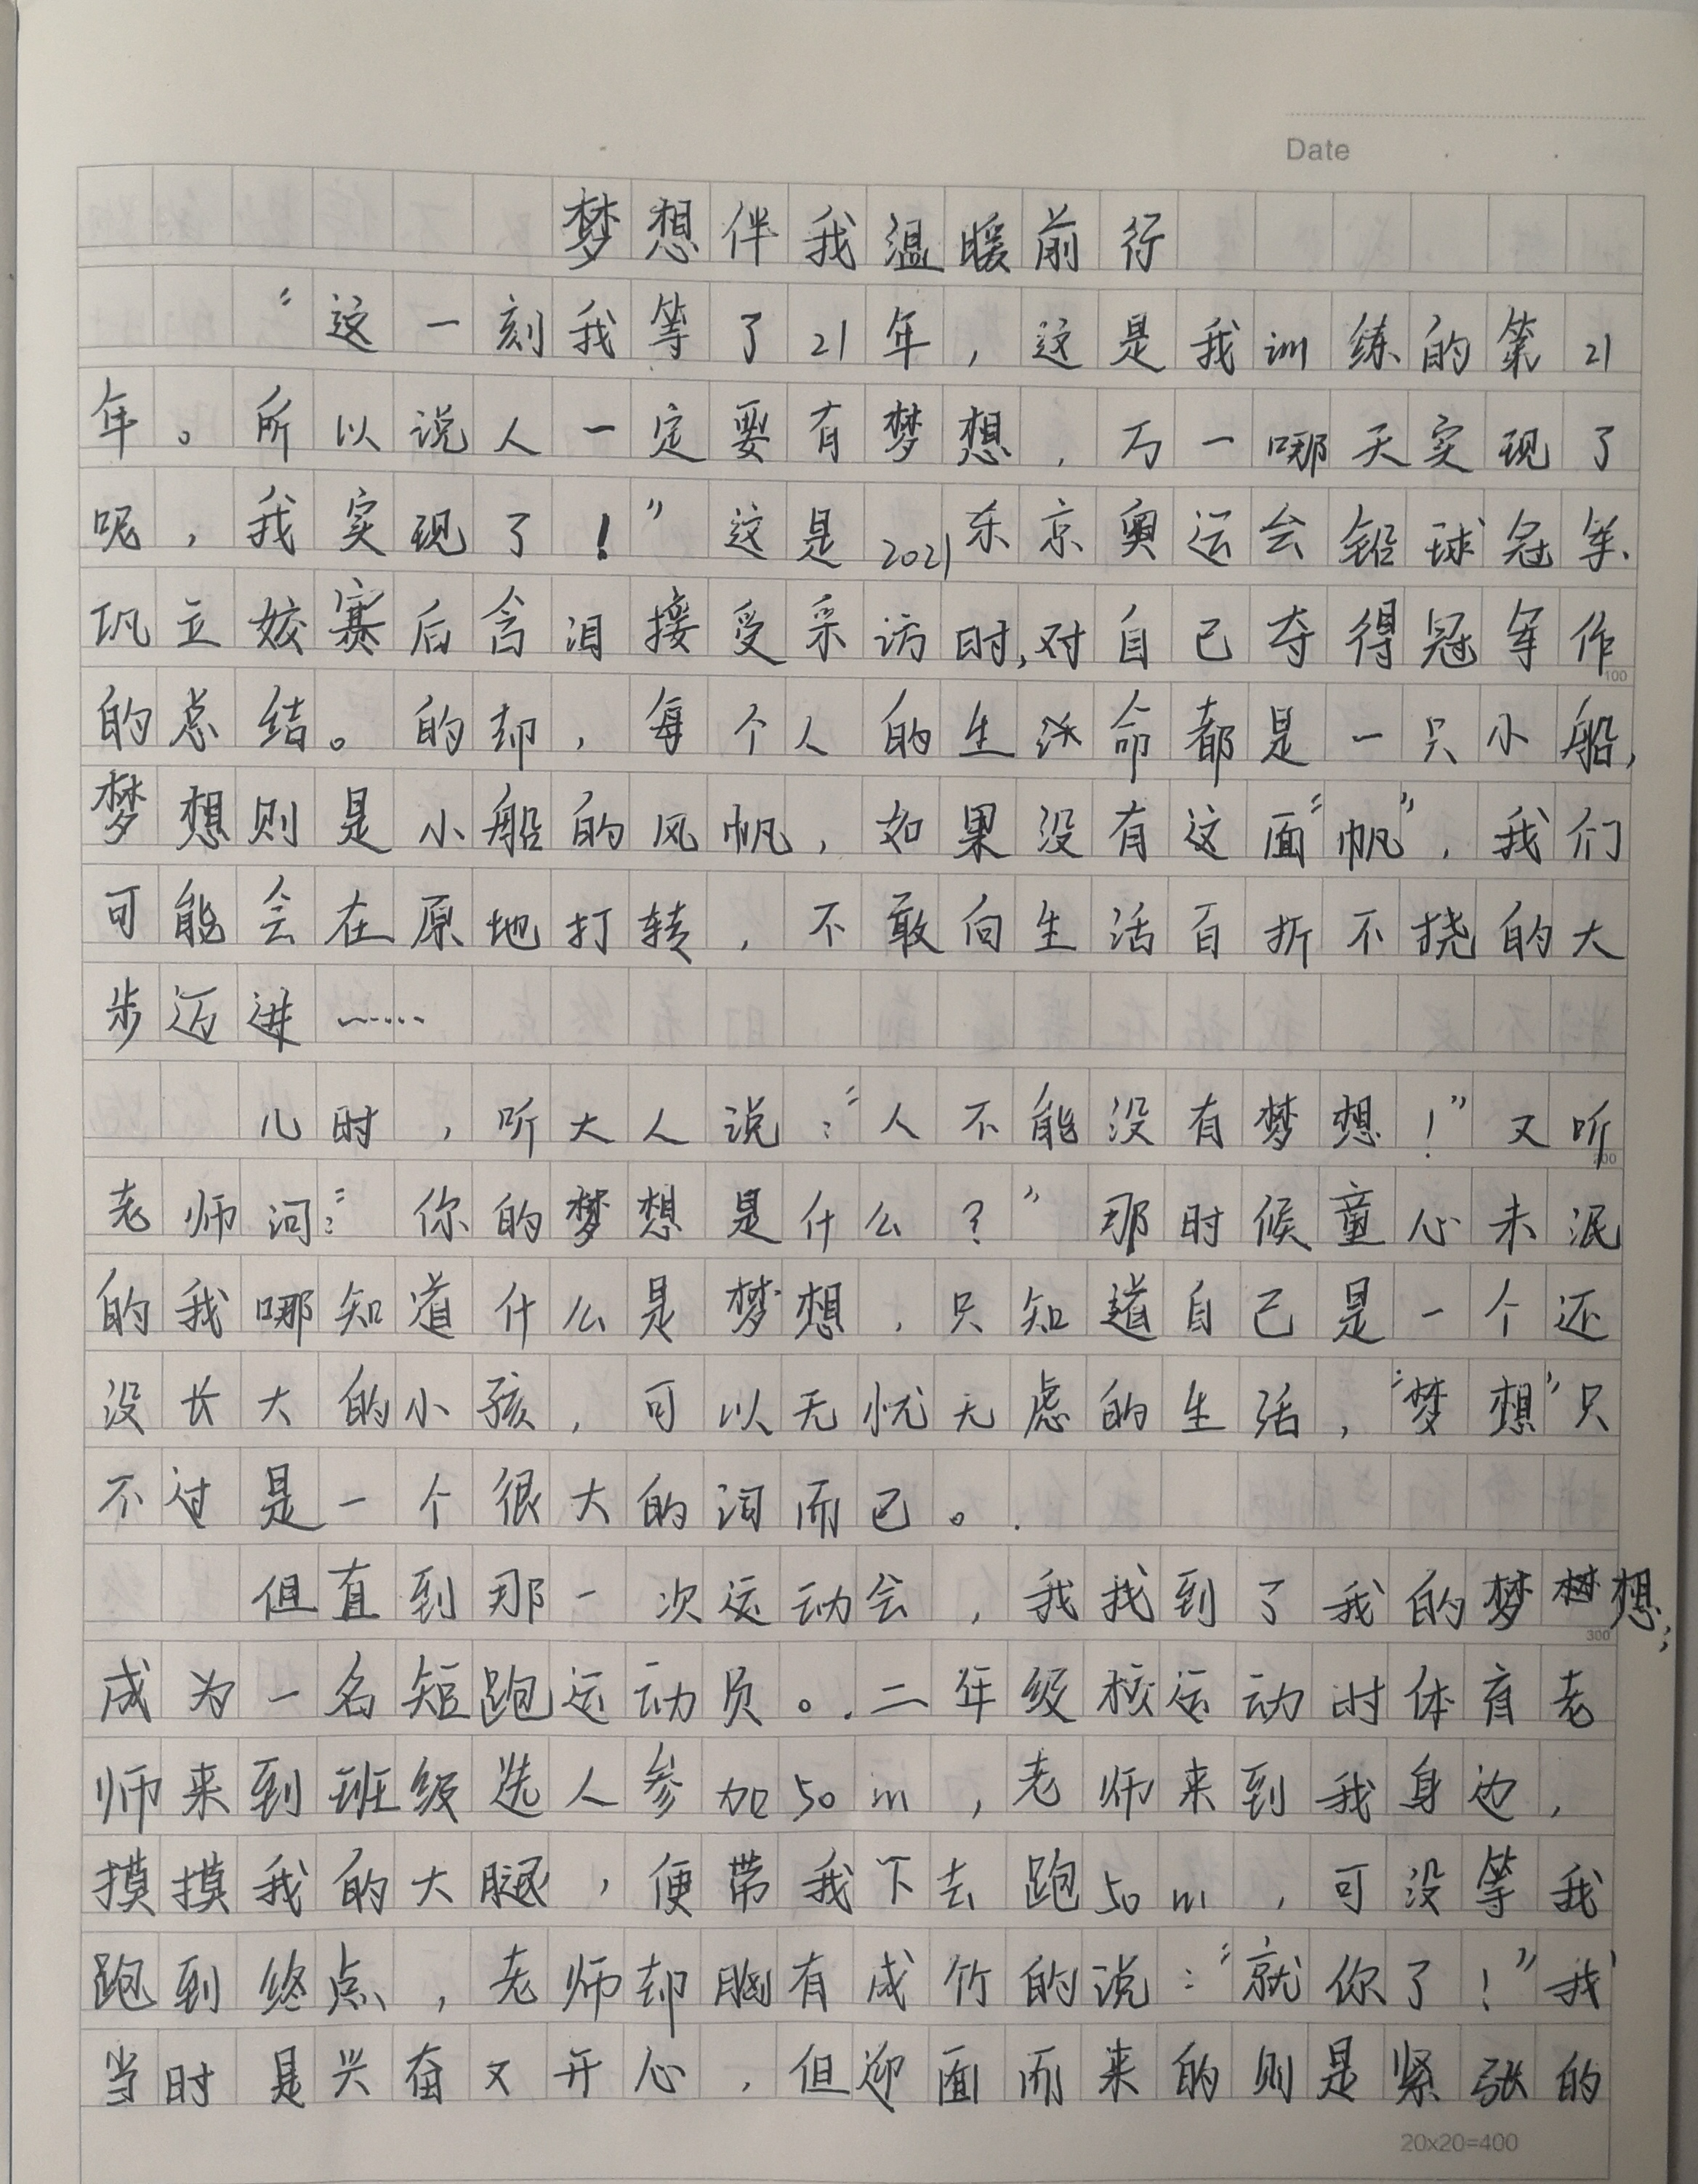 Date
梦想伴我温暖前行
“这一刻我等了21年，这是我训练的第21
年。所以说人一定要有梦想，万一哪天实现了
呢，我实现了！”这是2021东京奥运会铅球冠军
巩立姣赛后含泪接受采访时,对自己夺得冠军作
100
的总结。的却，每个人的生命都是一只小船,
梦想则是小船的风帆，如果没有这面“帆”，我们
可能会在原地打转，不敢向生活百折不挠的大
步迈进……
儿时，听大人说：“人不能没有梦想！”又听
200
老师问：“你的梦想是什么？”那时候童心未泯
的我哪知道什么是梦想，只知道自己是一个还
没长大的小孩，可以无忧无虑的生活，“梦想”只
不过是一个很大的词而已。
但直到那一次运动会，我找到了我的梦想;
300
成为一名短跑运动员。二年级校运动时体育老
师来到班级选人参加50m，老师来到我身边，
摸摸我的大腿，便带我下去跑50m，可没等我
跑到终点，老师却胸有成竹的说：“就你了！”我
当时是兴奋又开心，但迎面而来的则是紧张的
20x20=400